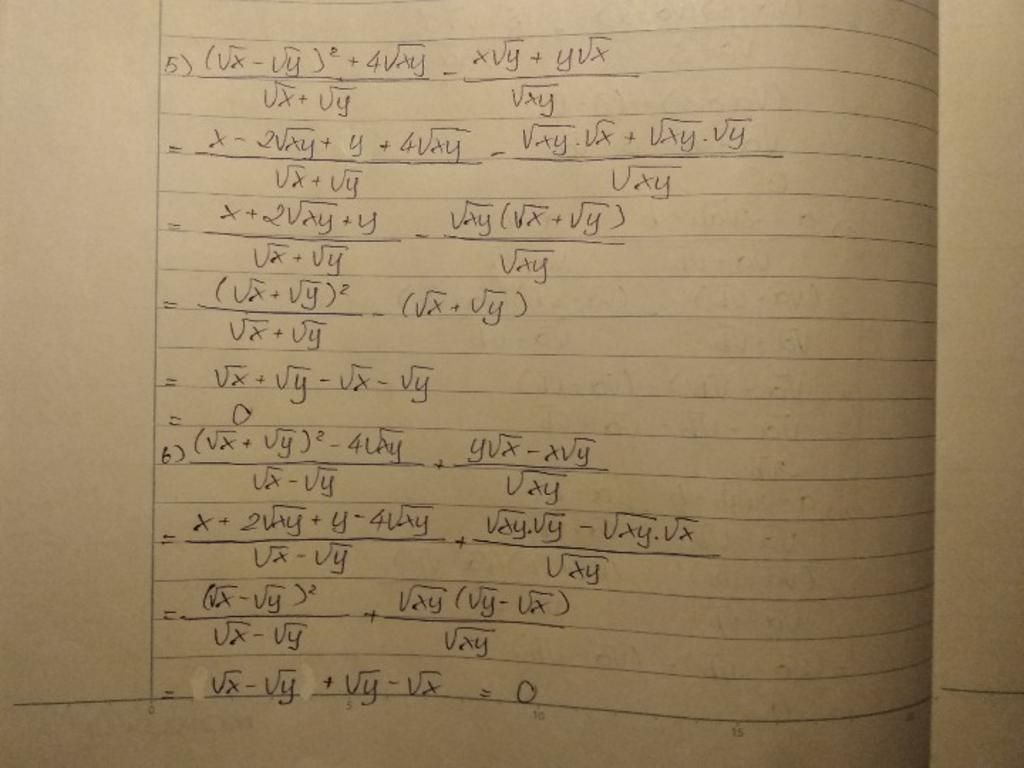 5) \frac{(\sqrt{x} - \sqrt{y})^2 + 4\sqrt{xy}}{\sqrt{x} + \sqrt{y}} - \frac{x\sqrt{y} + y\sqrt{x}}{\sqrt{xy}}
= \frac{x - 2\sqrt{xy} + y + 4\sqrt{xy}}{\sqrt{x} + \sqrt{y}} - \frac{\sqrt{xy}.\sqrt{x} + \sqrt{xy}.\sqrt{y}}{\sqrt{xy}}
= \frac{x + 2\sqrt{xy} + y}{\sqrt{x} + \sqrt{y}} - \frac{\sqrt{xy}(\sqrt{x} + \sqrt{y})}{\sqrt{xy}}
= \frac{(\sqrt{x} + \sqrt{y})^2}{\sqrt{x} + \sqrt{y}} - (\sqrt{x} + \sqrt{y})
= \sqrt{x} + \sqrt{y} - \sqrt{x} - \sqrt{y}
= 0
6) \frac{(\sqrt{x} + \sqrt{y})^2 - 4\sqrt{xy}}{\sqrt{x} - \sqrt{y}} + \frac{y\sqrt{x} - x\sqrt{y}}{\sqrt{xy}}
= \frac{x + 2\sqrt{xy} + y - 4\sqrt{xy}}{\sqrt{x} - \sqrt{y}} + \frac{\sqrt{xy}.\sqrt{y} - \sqrt{xy}.\sqrt{x}}{\sqrt{xy}}
= \frac{(\sqrt{x} - \sqrt{y})^2}{\sqrt{x} - \sqrt{y}} + \frac{\sqrt{xy}(\sqrt{y} - \sqrt{x})}{\sqrt{xy}}
= \sqrt{x} - \sqrt{y} + \sqrt{y} - \sqrt{x} = 0
0 5 10 15